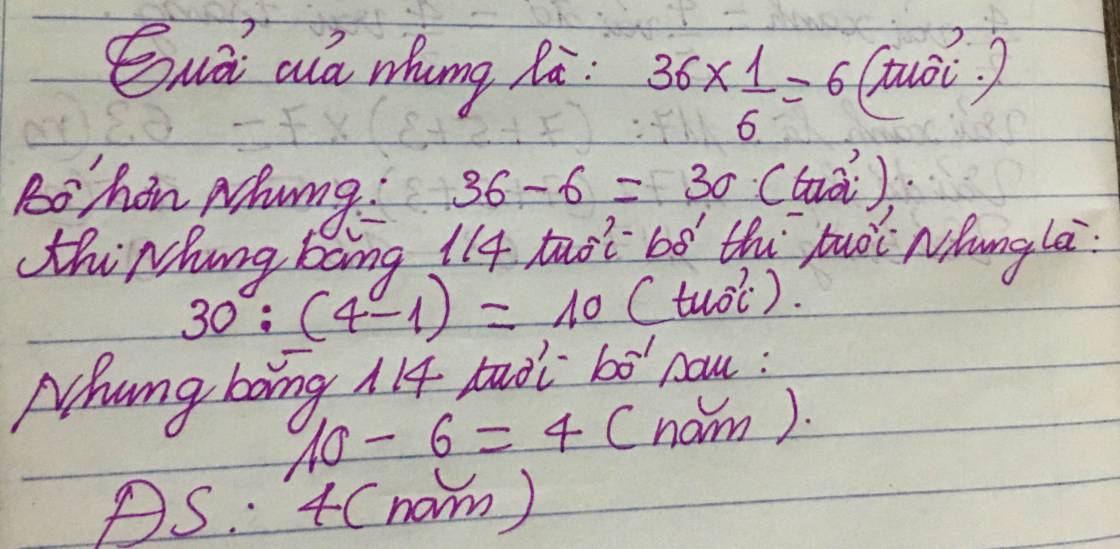 Tuổi của nhung là: 36 × 1/6 = 6 (tuổi.)
Bố hơn Nhung: 36 - 6 = 30 (tuổi).
Khi Nhung bằng 1/4 tuổi bố thì tuổi Nhung là:
30 : (4-1) = 10 (tuổi).
Nhung bằng 1/4 tuổi bố sau:
10 - 6 = 4 (năm).
ĐS: 4 (năm)